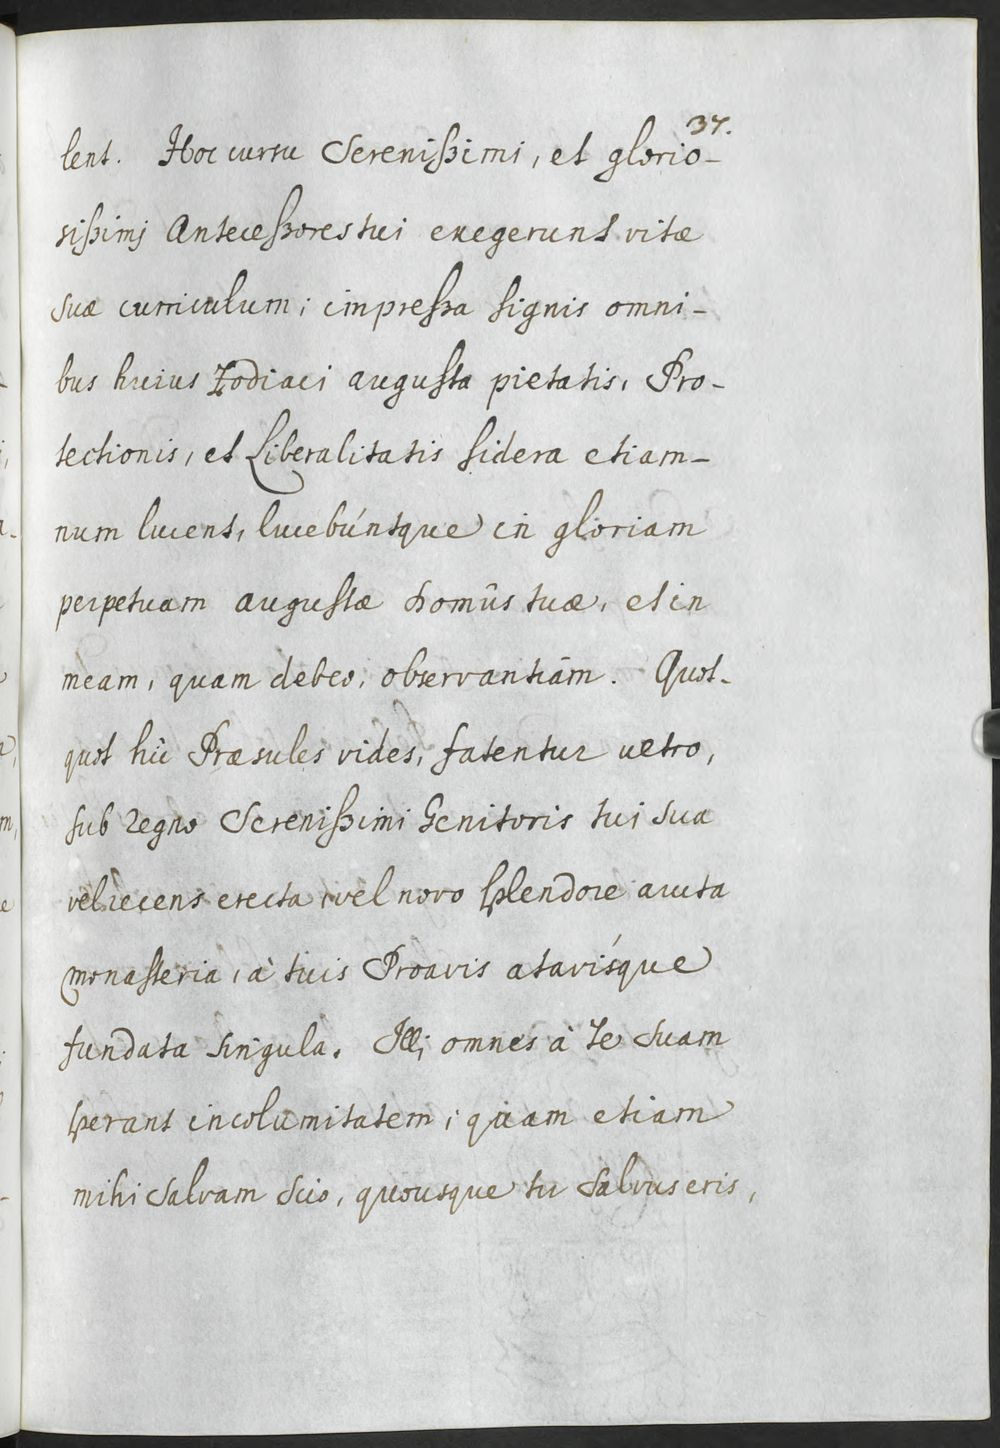 37.
lent. Hoc cursu Serenißimi, et glorio-
sißimj Anteceßores tui exegerunt vitæ
suæ curriculum; impreßa signis omni-
bus huius Zodiaci augusta pietatis, Pro-
tectionis, et Liberalitatis sidera etiam-
num lucent, lucebúntque in gloriam
perpetuam augustæ domûs tuæ, et in
meam, quam debeo, observantiam. Quot-
quot hic Præsules vides, fatentur ultro,
sub regno Serenißimi Genitoris tui sua
vel recens erecta, vel novo splendore aucta
monasteria, à tuis Proavis atavísque
fundata singula. Illi omnes à Te suam
sperant incolumitatem; quam etiam
mihi salvam scio, quousque tu salvus eris,